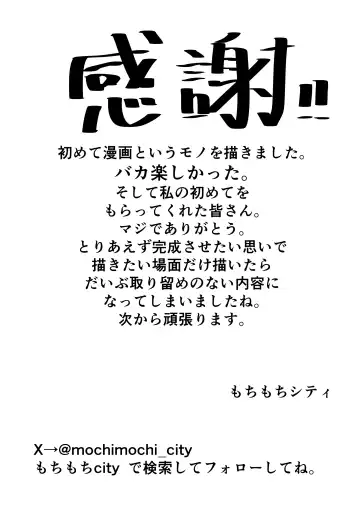 感謝!!
初めて漫画というモノを描きました。
バカ楽しかった。
そして私の初めてを
もらってくれた皆さん。
マジでありがとう。
とりあえず完成させたい思いで
描きたい場面だけ描いたら
だいぶ取り留めのない内容に
なってしまいましたね。
次から頑張ります。
もちもちシティ
X→@mochimochi_city
もちもちcity で検索してフォローしてね。